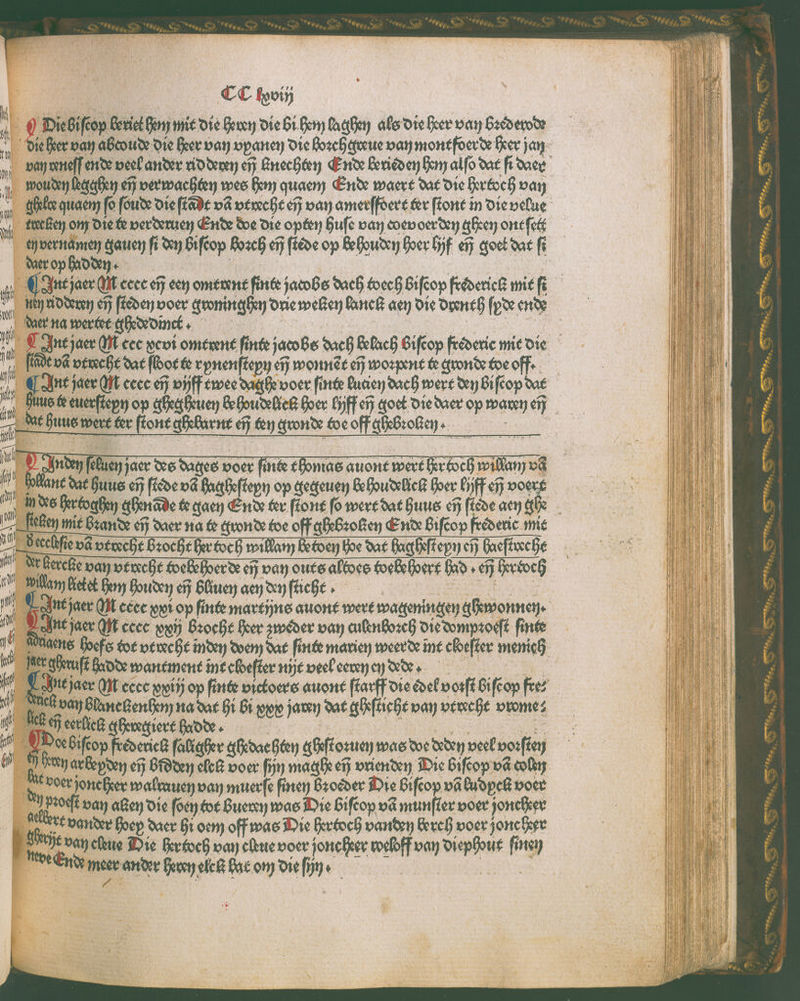 CC lxviij
¶ Die biscop beriet hem mit die heren die bi hem laghen als die heer van brederode
die heer van abcoude die heer van vyanen die borchgreue van montfoerde heer jan
van reness ende veel ander ridderen eñ knechten Ende berieden hem also dat si daer
wouden legghen eñ verwachten wes hem quaem Ende waert dat die hertoch van
ghelre quaem so soude die stadt vã vtrecht eñ van amersfoert ter stont in die velue
trecken om die te verderuen Ende doe die opten huse van coevoerden gheen ontsett
en vernamen gauen si den biscop borch eñ stede op behouden hoer lijf eñ goet dat si
daer op hadden.
¶ Int jaer M cccc eñ een omtrent sinte jacobs dach toech biscop frederick mit si
nen ridderen eñ steden voer groninghen drie weken lanck aen die drenth syde ende
daer na wertet ghededinct.
¶ Int jaer M ccc xcvi omtrent sinte jacobs dach belach biscop frederic mit die
stadt vã vtrecht dat sloot te rynensteyn eñ wonnẽt eñ worpent te gronde toe off.
¶ Int jaer M cccc eñ vijff twee daghe voer sinte lucien dach wert den biscop dat
huus te euersteyn op ghegheuen behoudelick hoer lijff eñ goet die daer op waren eñ
dat huus wert ter stont ghebarnt eñ ten gronde toe off ghebroken.
¶ Inden seluen jaer des dages voer sinte thomas auont wert hertoch willam vã
hollant dat huus eñ stede vã haghesteyn op gegeuen behoudelick hoer lijff eñ voert
in des hertoghen ghenade te gaen Ende ter stont so wert dat huus eñ stede aen ghe
steken mit brande eñ daer na te gronde toe off ghebroken Ende biscop frederic mit
d ecclesie vã vtrecht brocht hertoch willam betoen hoe dat haghesteyn eñ haestrecht
der kercke van vtrecht toebehoerde eñ van outs altoes toebehoert had. eñ hertoch
willam lietet hem houden eñ bliuen aen den sticht.
¶ Int jaer M cccc xxi op sinte martijns auont wert wageningen ghewonnen.
¶ Int jaer M cccc xxij brocht heer zweder van culenborch die domproest sinte
adriaens hoefs tot vtrecht inden doem dat sinte marien weerde int cloester menich
jaer gherust hadde wantment int cloester nijt veel eeren en dede.
¶ Int jaer M cccc xxiij op sinte victoers auont starff die edel vorst biscop fre⸗
derick van blanckenhem na dat hi bi xxx jaren dat ghesticht van vtrecht vrome⸗
lick eñ eerlick gheregiert hadde.
¶ Doe biscop frederick saligher ghedachten ghestoruen was doe deden veel vorsten
eñ heren arbeyden eñ bidden elck voer sijn maghe eñ vrienden Die biscop vã colen
bat voer joncheer walrauen van muerse sinen broeder Die biscop vã ludyck voer
den proest van aken die soen tot bueren was Die biscop vã munster voer joncheer
aelbert vander hoey daer hi oem off was Die hertoch vanden berch voer joncheer
gherijt van cleue Die hertoch van cleue voer joncheer roeloff van diephout sinen
neve Ende meer ander heren elck bat om die sijn.